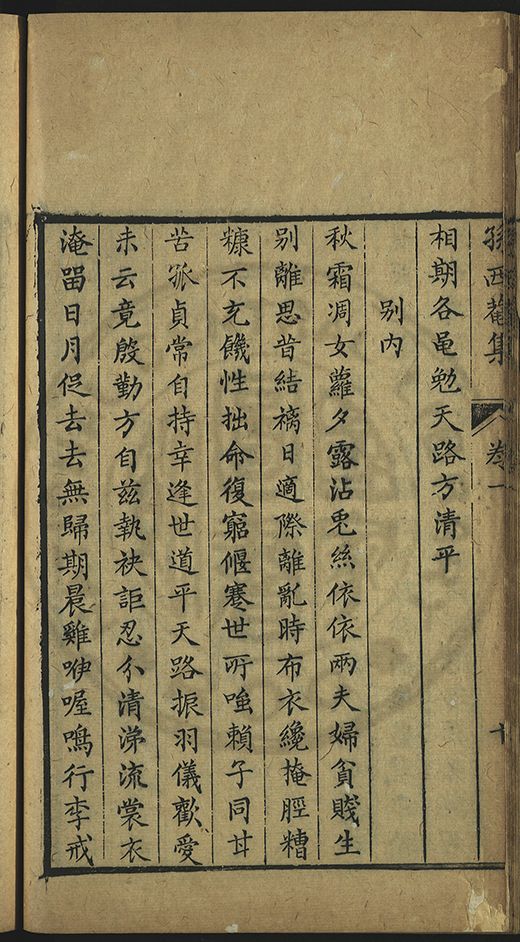 孫西菴集 卷一 十
相期各黽勉天路方清平
别内
秋霜凋女蘿夕露沾兎絲依依兩夫婦貧賤生
别離思昔結褵日適際離亂時布衣纔掩脛糟
糠不充饑性拙命復窮偃蹇世所嗤賴子同甘
苦孤貞常自持幸逢世道平天路振羽儀歡愛
未云竟殷勤方自兹執袂詎忍分清涕流裳衣
淹留日月促去去無歸期晨雞咿喔鳴行李戒